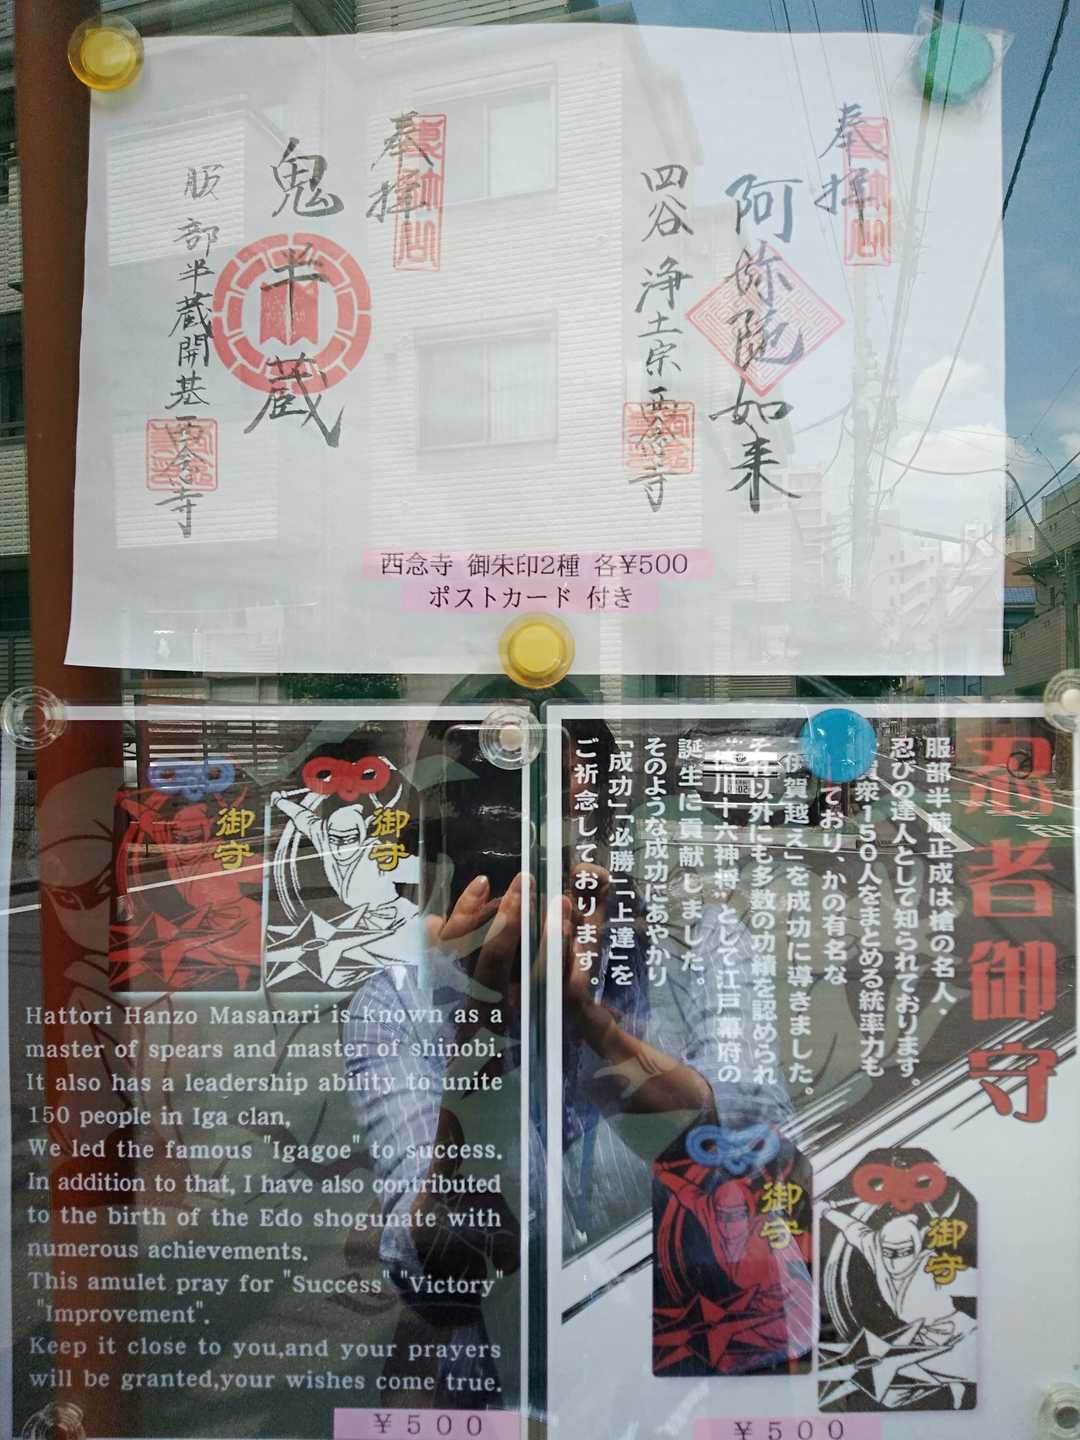 奉拝
阿弥陀如来
四谷 浄土宗 西念寺
奉拝
鬼半蔵
服部半蔵開基西念寺
西念寺 御朱印2種 各¥500
ポストカード 付き
御守
御守
Hattori Hanzo Masanari is known as a
master of spears and master of shinobi.
It also has a leadership ability to unite
150 people in Iga clan,
We led the famous "Igagoe" to success.
In addition to that, I have also contributed
to the birth of the Edo shogunate with
numerous achievements.
This amulet pray for "Success" "Victory"
"Improvement".
Keep it close to you,and your prayers
will be granted,your wishes come true.
¥500
忍者御守
服部半蔵正成は槍の名人・
忍びの達人として知られております。
賀衆150人をまとめる統率力も
ており、かの有名な
伊賀越え」を成功に導きました。
それ以外にも多数の功績を認められ
徳川十六神将"として江戸幕府の
誕生に貢献しました。
そのような成功にあやかり
「成功」「必勝」「上達」を
ご祈念しております。
御守
御守
¥500